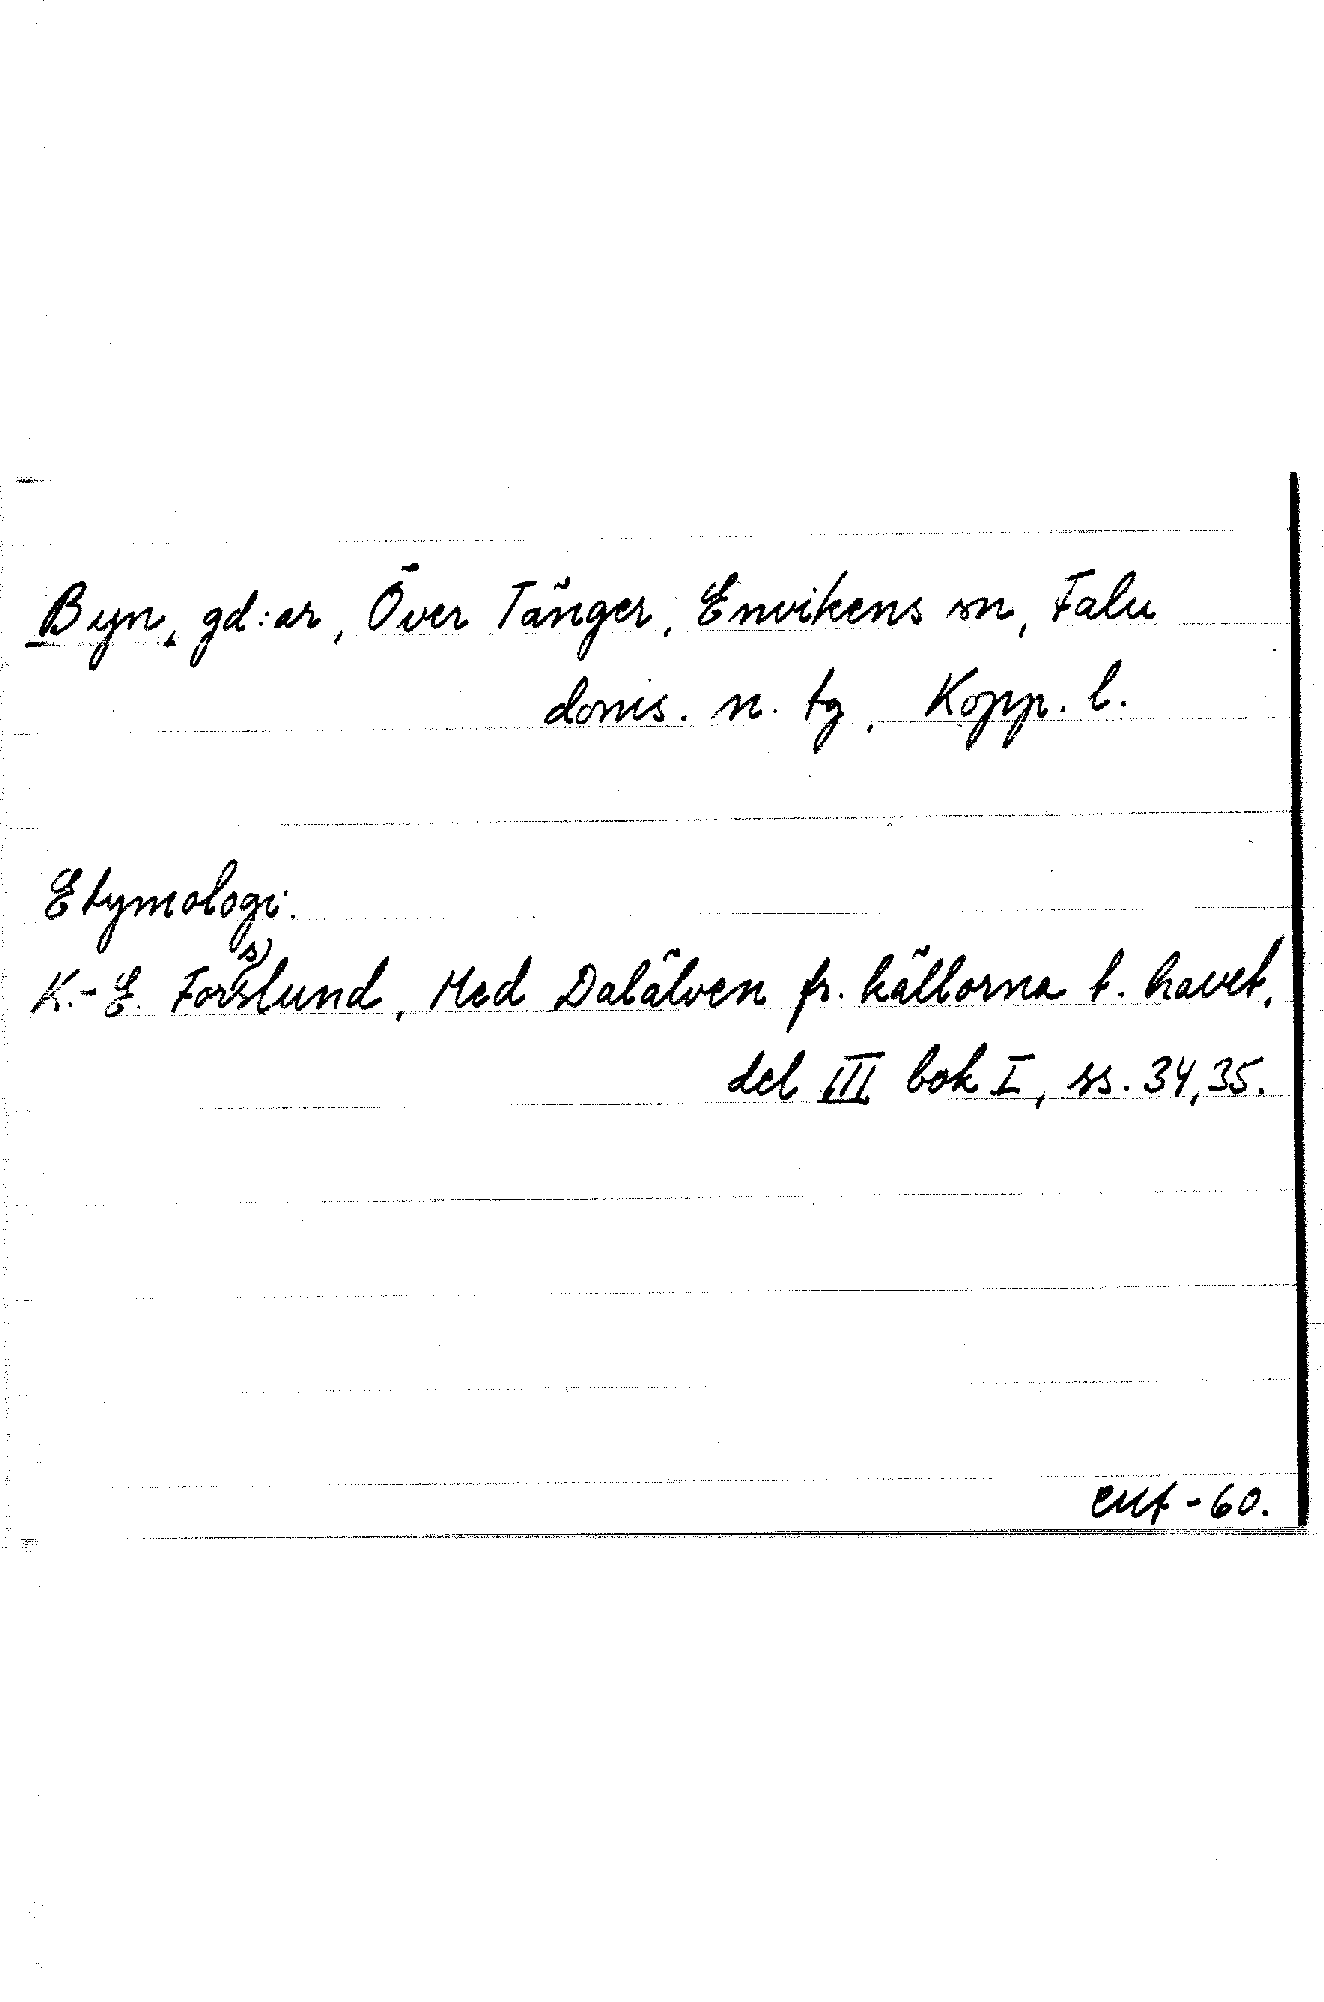 Byn, gd:ar, Över Tänger, Envikens sn, Falu
doms. n. tg, Kopp. l.
Etymologi.
K.-E. Forsslund, Med Dalälven fr. källorna t. havet,
del III bok I, ss. 34,35.
-60.